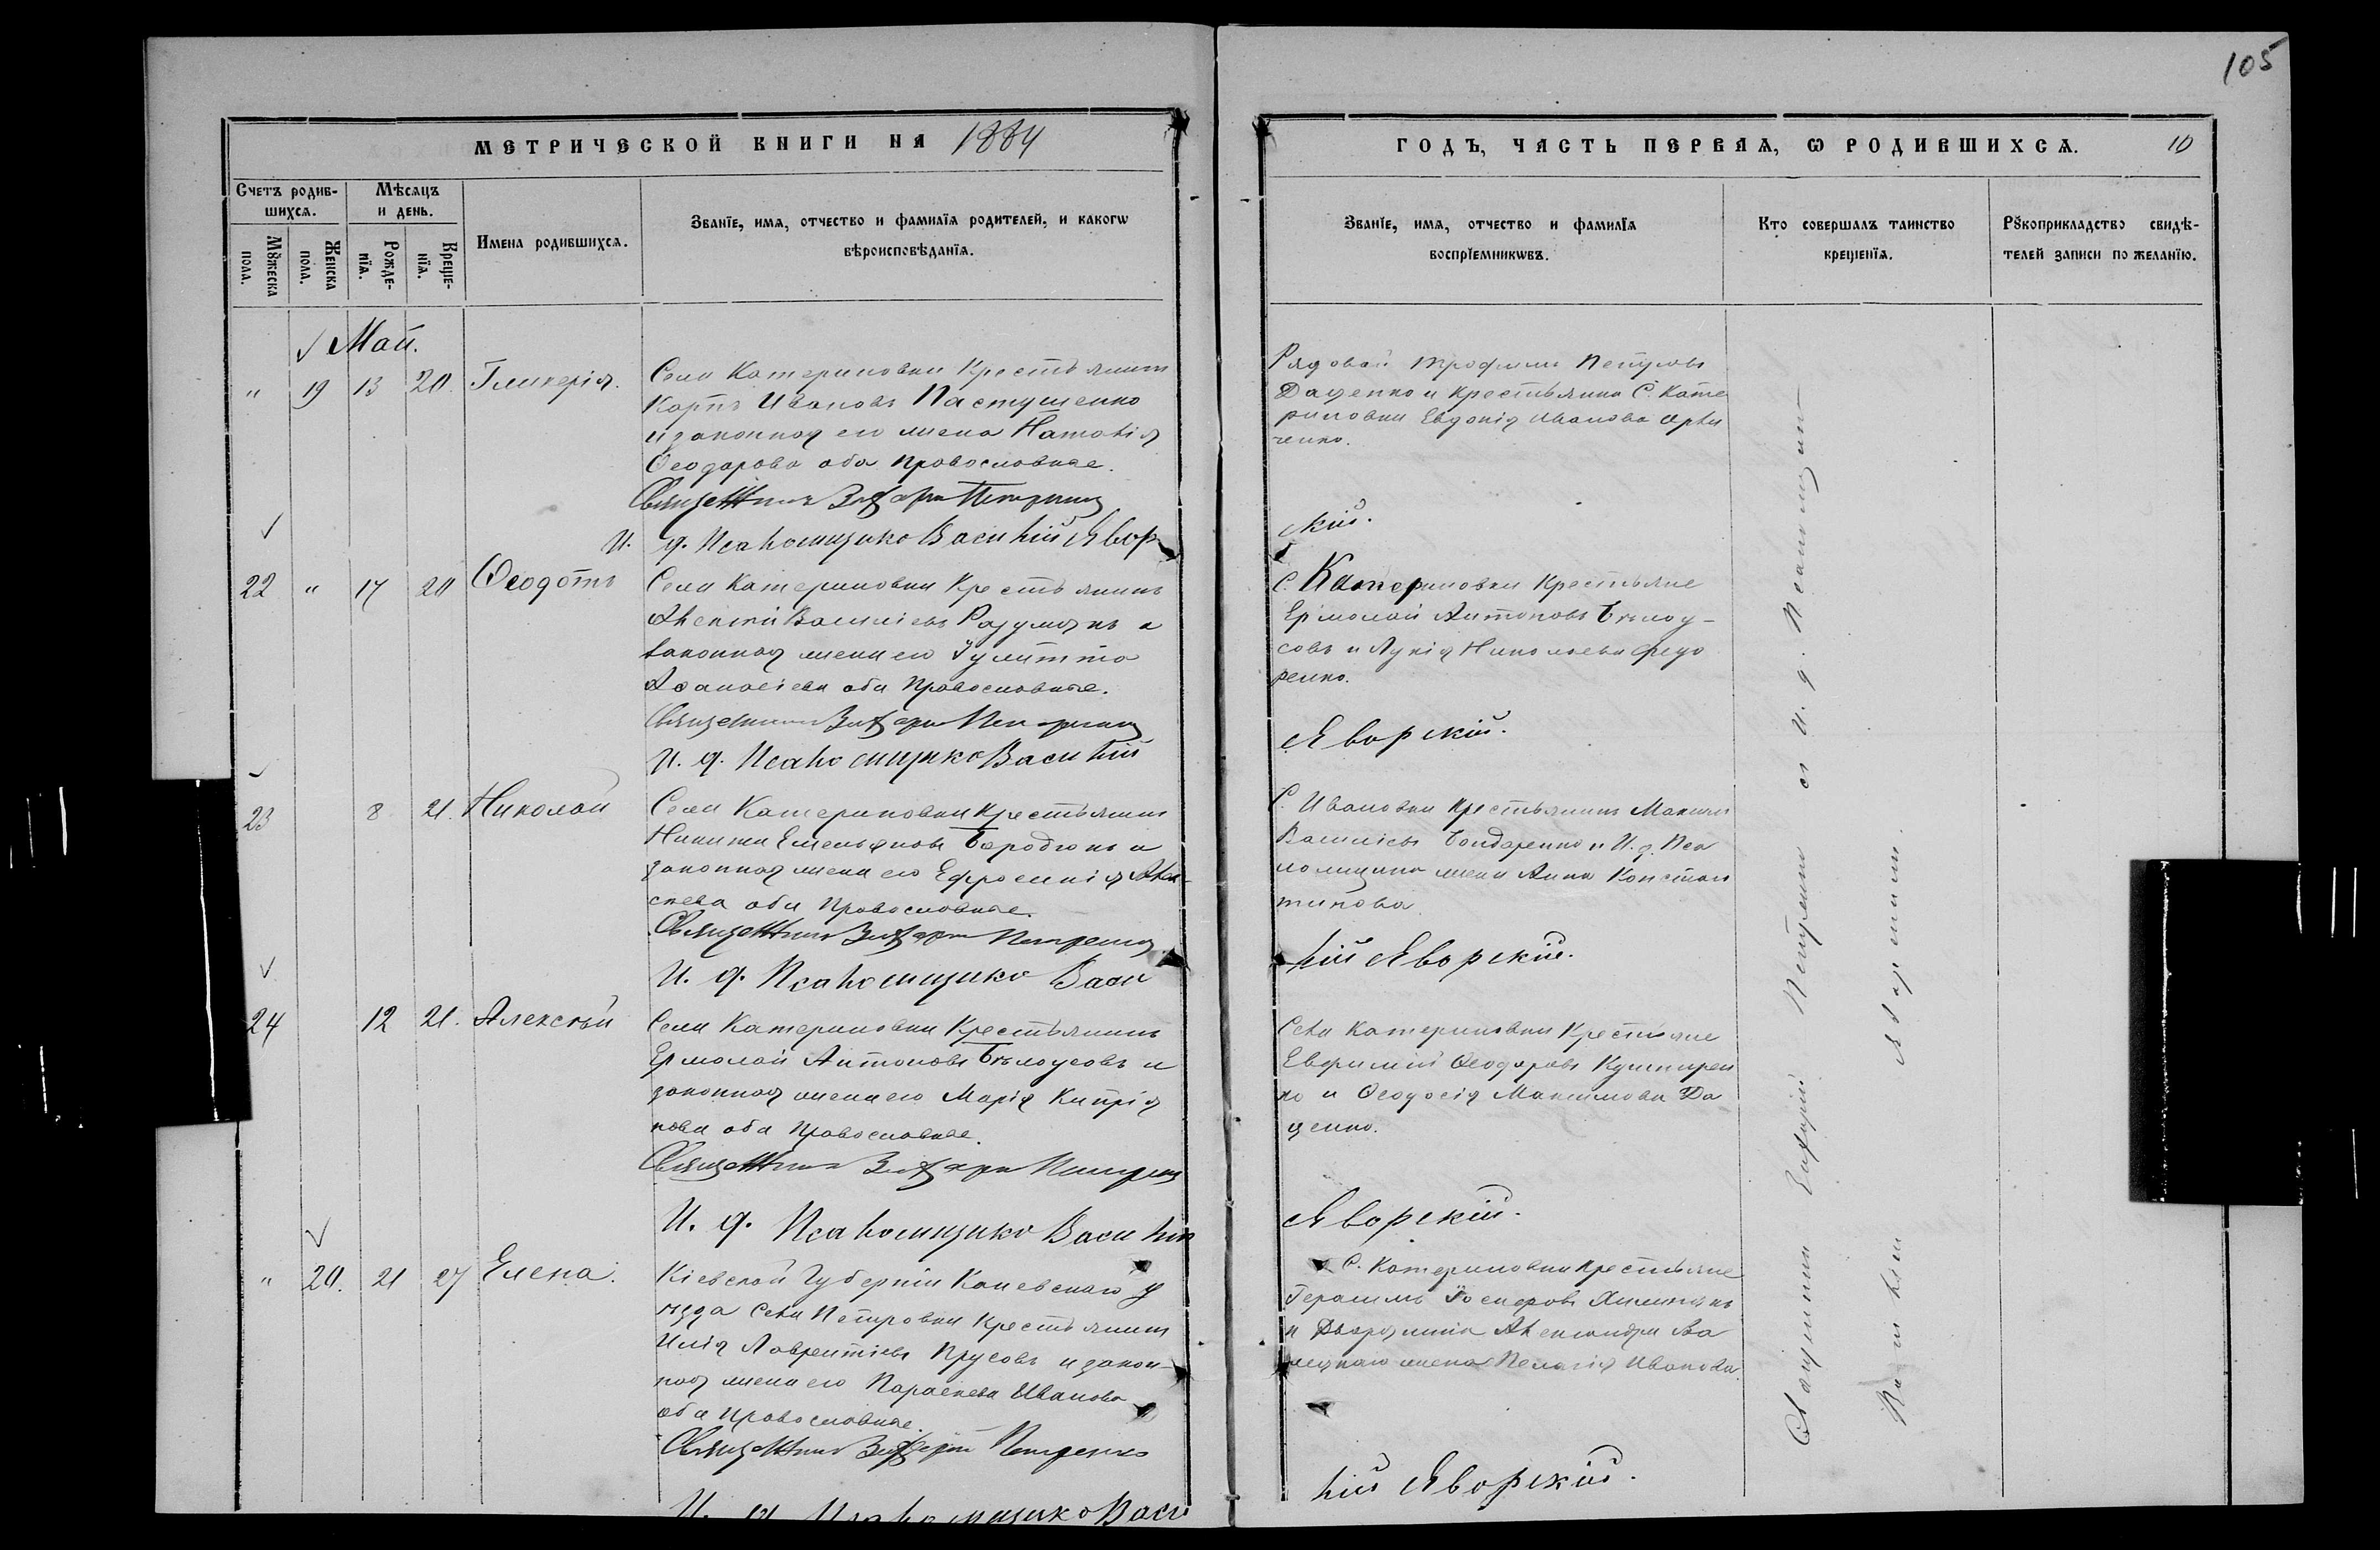 105
МЕТРИЧЕСКОЙ КНИГИ НА 1884
Счетъ родив-
шихсѧ.
Мѣсѧцъ
и день.
Мꙋжеска
пола.
Женска
пола.
Рожде-
нїѧ.
Креще-
нїѧ.
Имена родившихсѧ.
Званїе, имѧ, отчество и фамилїѧ родителей, и какогѡ
вѣроисповѣданїѧ.
Май.
" 19 13 20. Гликерія.
Села Катериновки Крестьянинъ
Карпъ Ивановъ Пастушенко
и законная его жена Наталія
Ѳеодорова оба православные.
Священникъ Захарій Петренко
И. д. Псаломщика Василій Явор
22 " 17 20 Ѳеодотъ
Села Катериновки Крестьянинъ
Алексѣй Василіевъ Разумакъ и
законная жена его Іулитта
Аѳанасіева оба православные.
Священникъ Захарій Петренко
И. д. Псаломщика Василій
23 8 21. Николай
Села Катериновки Крестьянинъ
Никита Емельяновъ Бородюкъ и
законная жена его Ефросинія Алек-
сѣева оба православные.
Священникъ Захарій Петренко
И. д. Псаломщика Васи
24 12 21. Алексѣй
Села Катериновки Крестьянинъ
Ермолай Антоновъ Бѣлоусовъ и
законная жена его Марія Кипрія
нова оба православные.
Священникъ Захарій Петренко
И. д. Псаломщика Василій
" 20. 21 27 Елена.
Кіевской Губерніи Каневскаго у
ѣзда села Петровки Крестьянинъ
Илія Лаврентіевъ Прусовъ и закон-
ная жена его Параскева Иванова
оба православные.
Священникъ Захарій Петренко
И. д. Псаломщика Васи
ГОДЪ, ЧАСТЬ ПЕРВАѦ, Ѡ РОДИВШИХСѦ. 10
Званїе, имѧ, отчество и фамилїѧ
воспрїемникѡвъ.
Кто совершалъ таинство
крещенїѧ.
Рꙋкоприкладство свидѣ-
телей записи по желанїю.
Рядовой Трофимъ Петровъ
Даценко и крестьянка С. Кате
риновки Евдокія Иванова
ченко.
скій.
С. Катериновки Крестьяне
Ермолай Антоновъ Бѣлоу-
совъ и Лукія Николаева Федо
ренко.
Яворскій.
С. Ивановки Крестьянинъ Максимъ
Василіевъ Бондаренко и И. д. Пса
ломщика жена Анна Констан
тинова
лій Яворскій.
Села Катериновки Крестьяне
Евфимій Ѳеодоровъ Кушнирен
ко и Ѳеодосія Максимова Да
ценко.
Яворскій.
С. Катериновки Крестьяне
Герасимъ Іосифовъ
и Дворянина Александра
жена Пелагія Иванова.
лій Яворскій.
Священникъ Захарій Петренко съ И. д. Псаломщика
Василіемъ Яворскимъ.